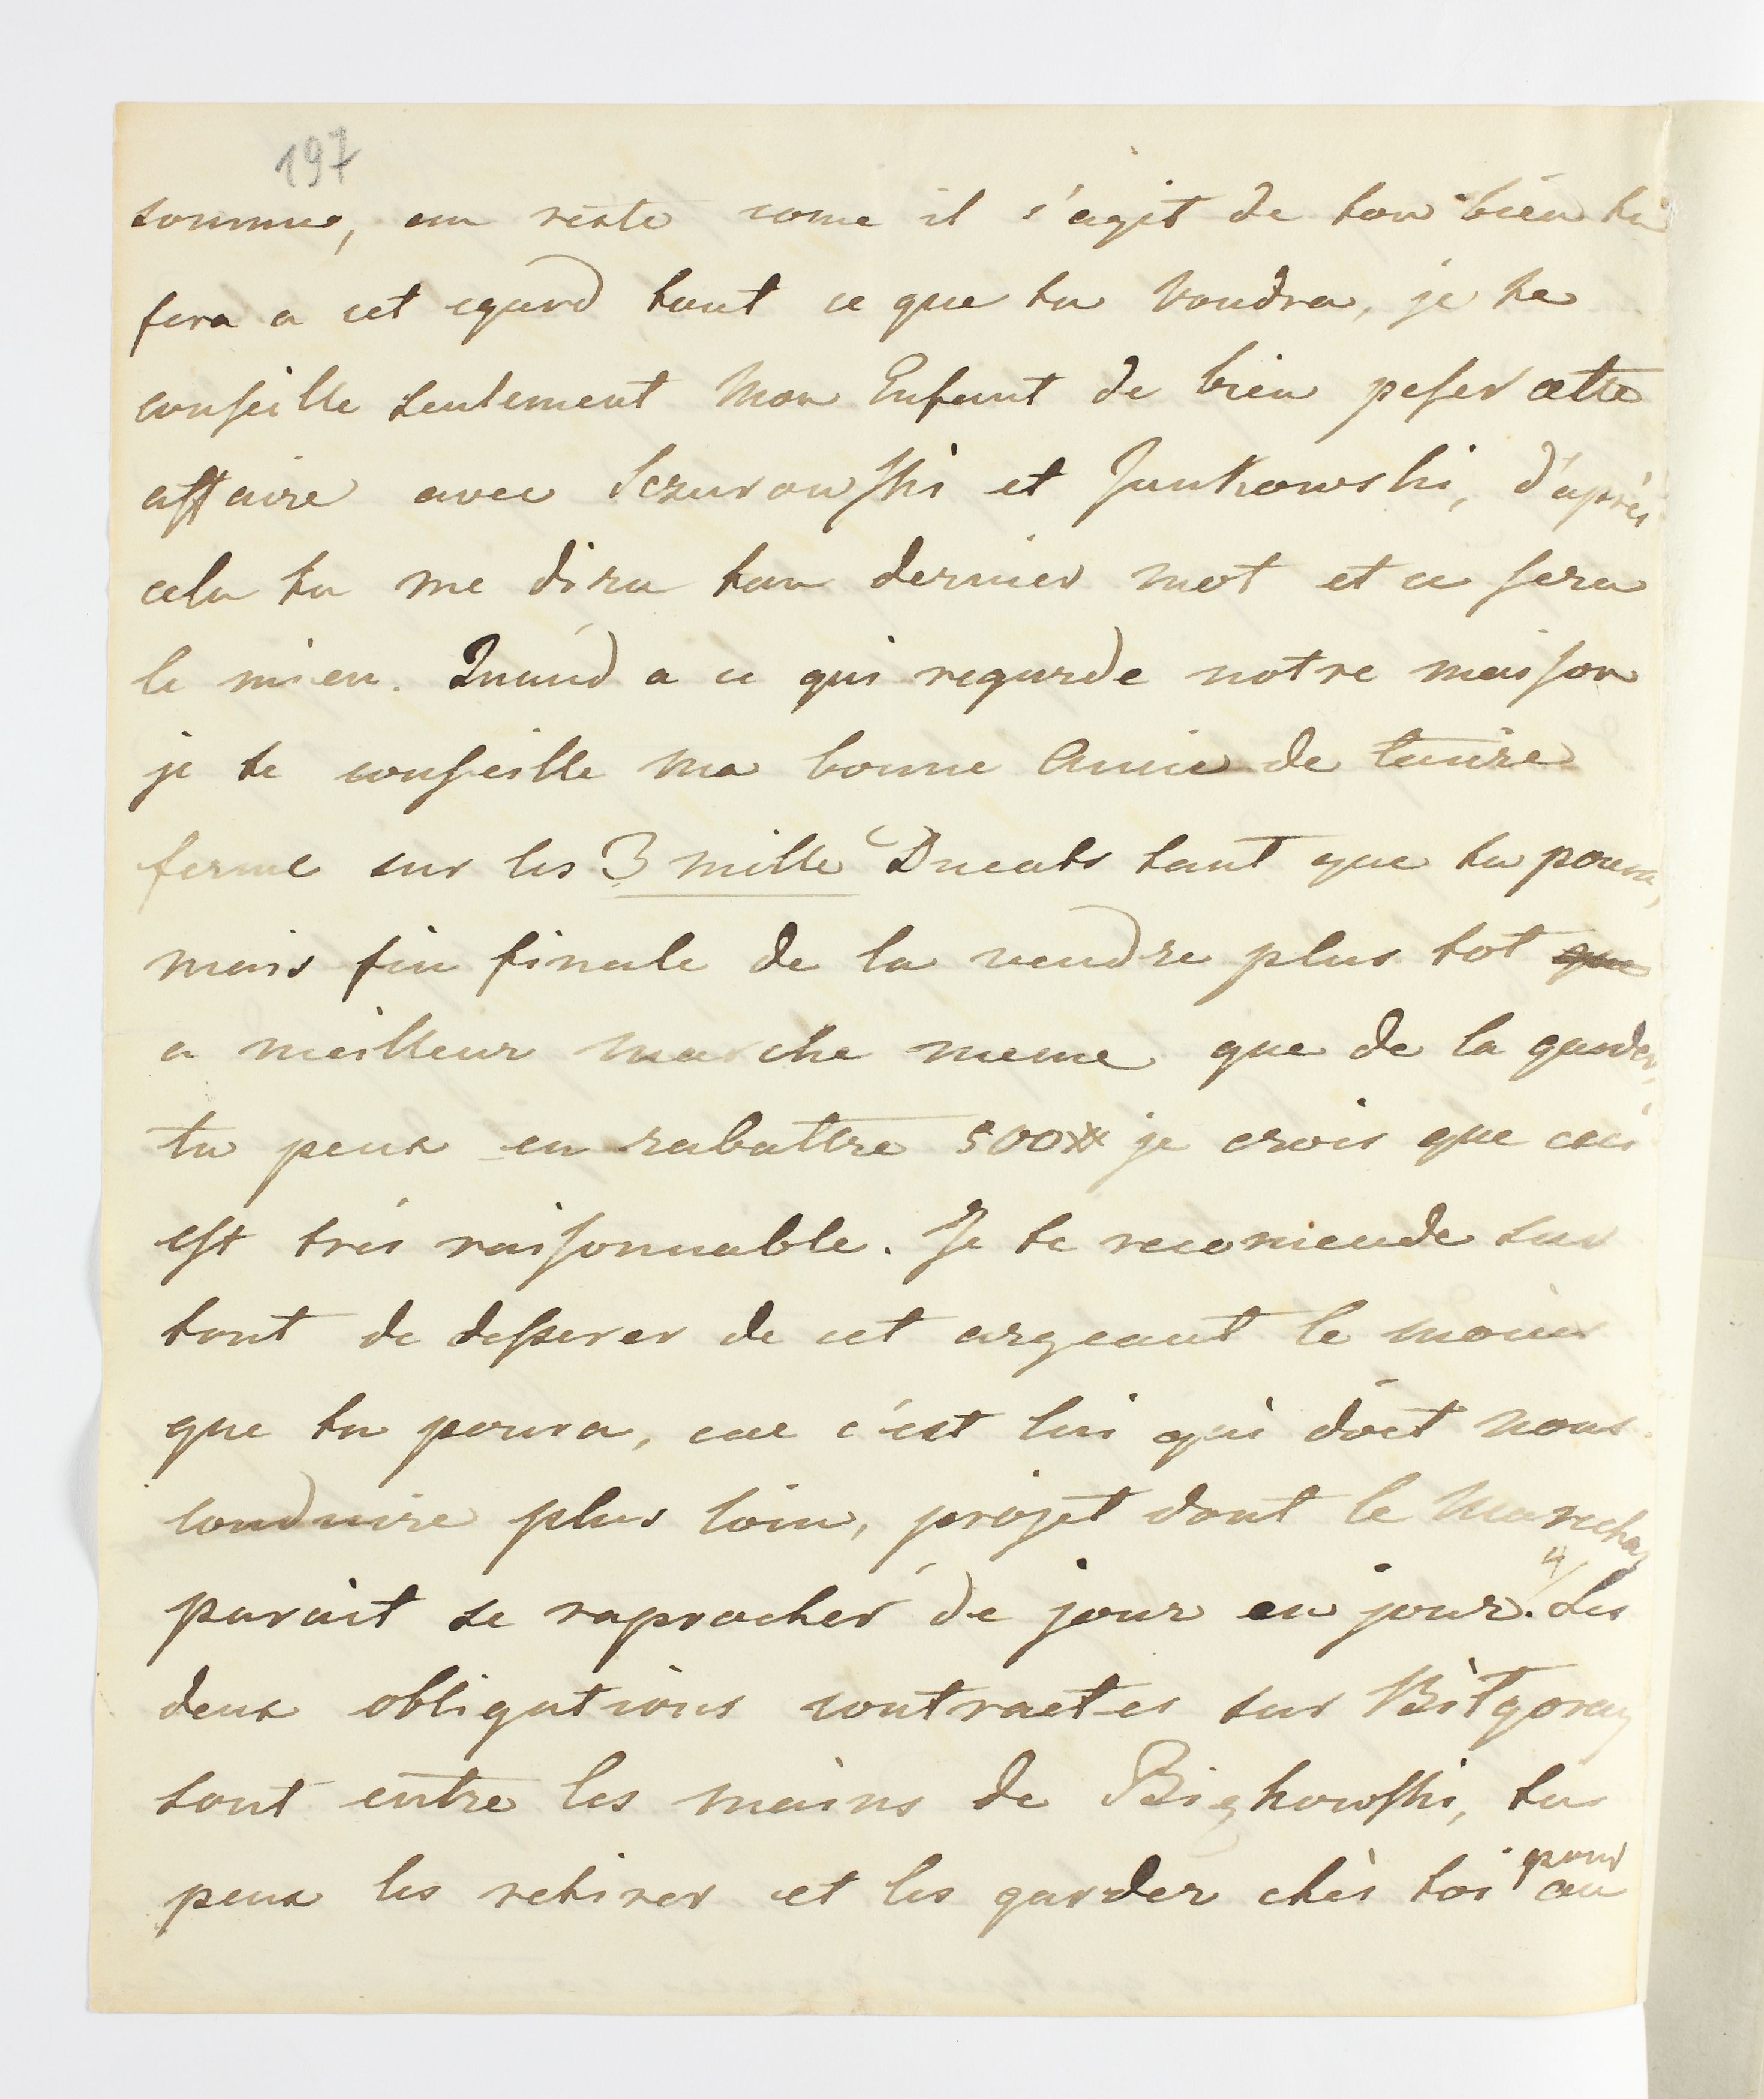 197
somme, au reste come il s'agit de ton bien tu
fera a cet egard tout ce que tu voudra, je te
conseille seulement Mon Enfant de bien peser cette
affaire avec Sczurowski et Junkowski, d'après
cela tu me dira ton dernier mot et ce sera
le mien. Quand a ce qui regarde notre maison
je te conseille ma bonne Amie de tenire
ferme sur les 3 mille Ducats tant que tu poura,
mais fin finale de la vendre plus tot que
a meilleur marche meme que de la garder,
tu peux en rabattre 500# je crois que ceci
est très raisonnable. Je te recomende sur
tout de desserer de cet argeant le moins
que tu poura, car c'est lui qui doit nous
conduire plus loin, projet dont le Marechal
parait se raprocher de jour en jour. Les
deux obligations contractes sur Bilgoray
sont entre les mains de
peux les retirer et les garder chès toi pour
au